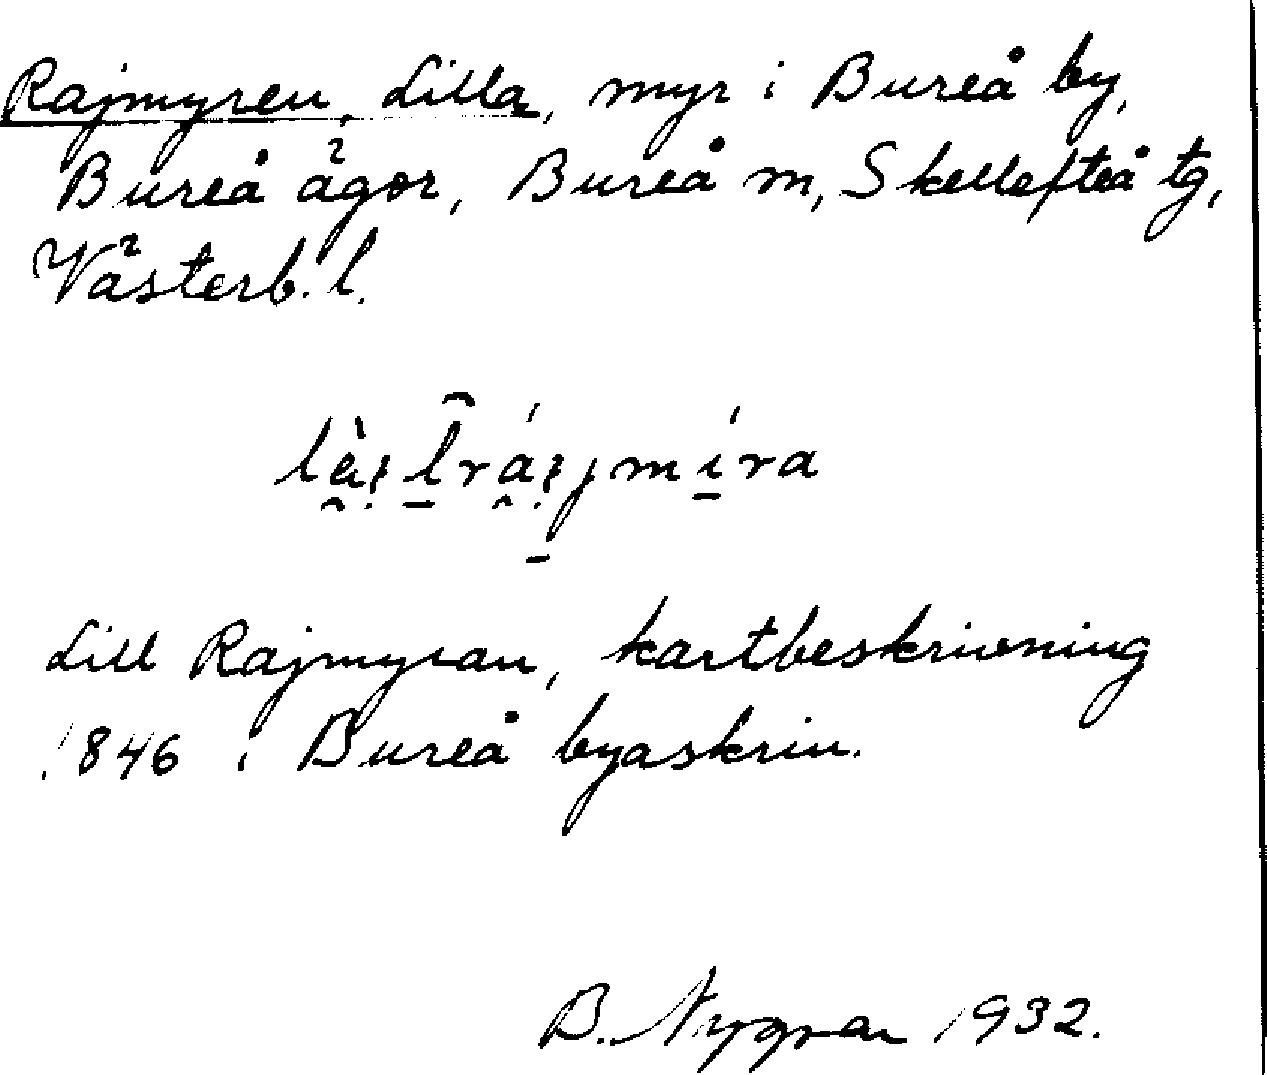 Rajmyren, Lilla, myr i Bureå by,
Bureå ägor, Bureå m, Skellefteå tg,
Västerb. l.
Lill Rajmyran, kartbeskrivning
1846 i Bureå byaskrin.
B. Nygren 1932.